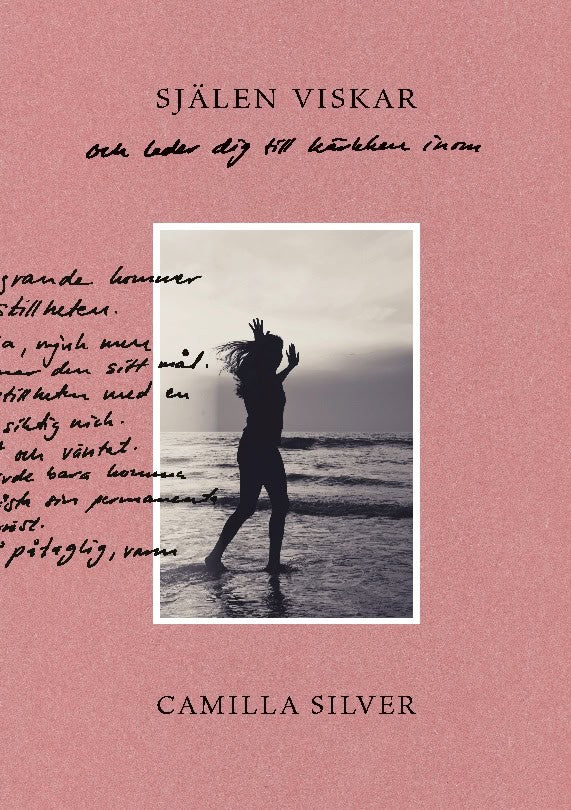 SJÄLEN VISKAR
och leder dig till kärleken inom
grande kommer
stillheten.
a, mjuk men
den sitt mål.
stillheten med en
siktig mich.
och väntat.
bara komma
sin permanenta
påtaglig, varm
CAMILLA SILVER